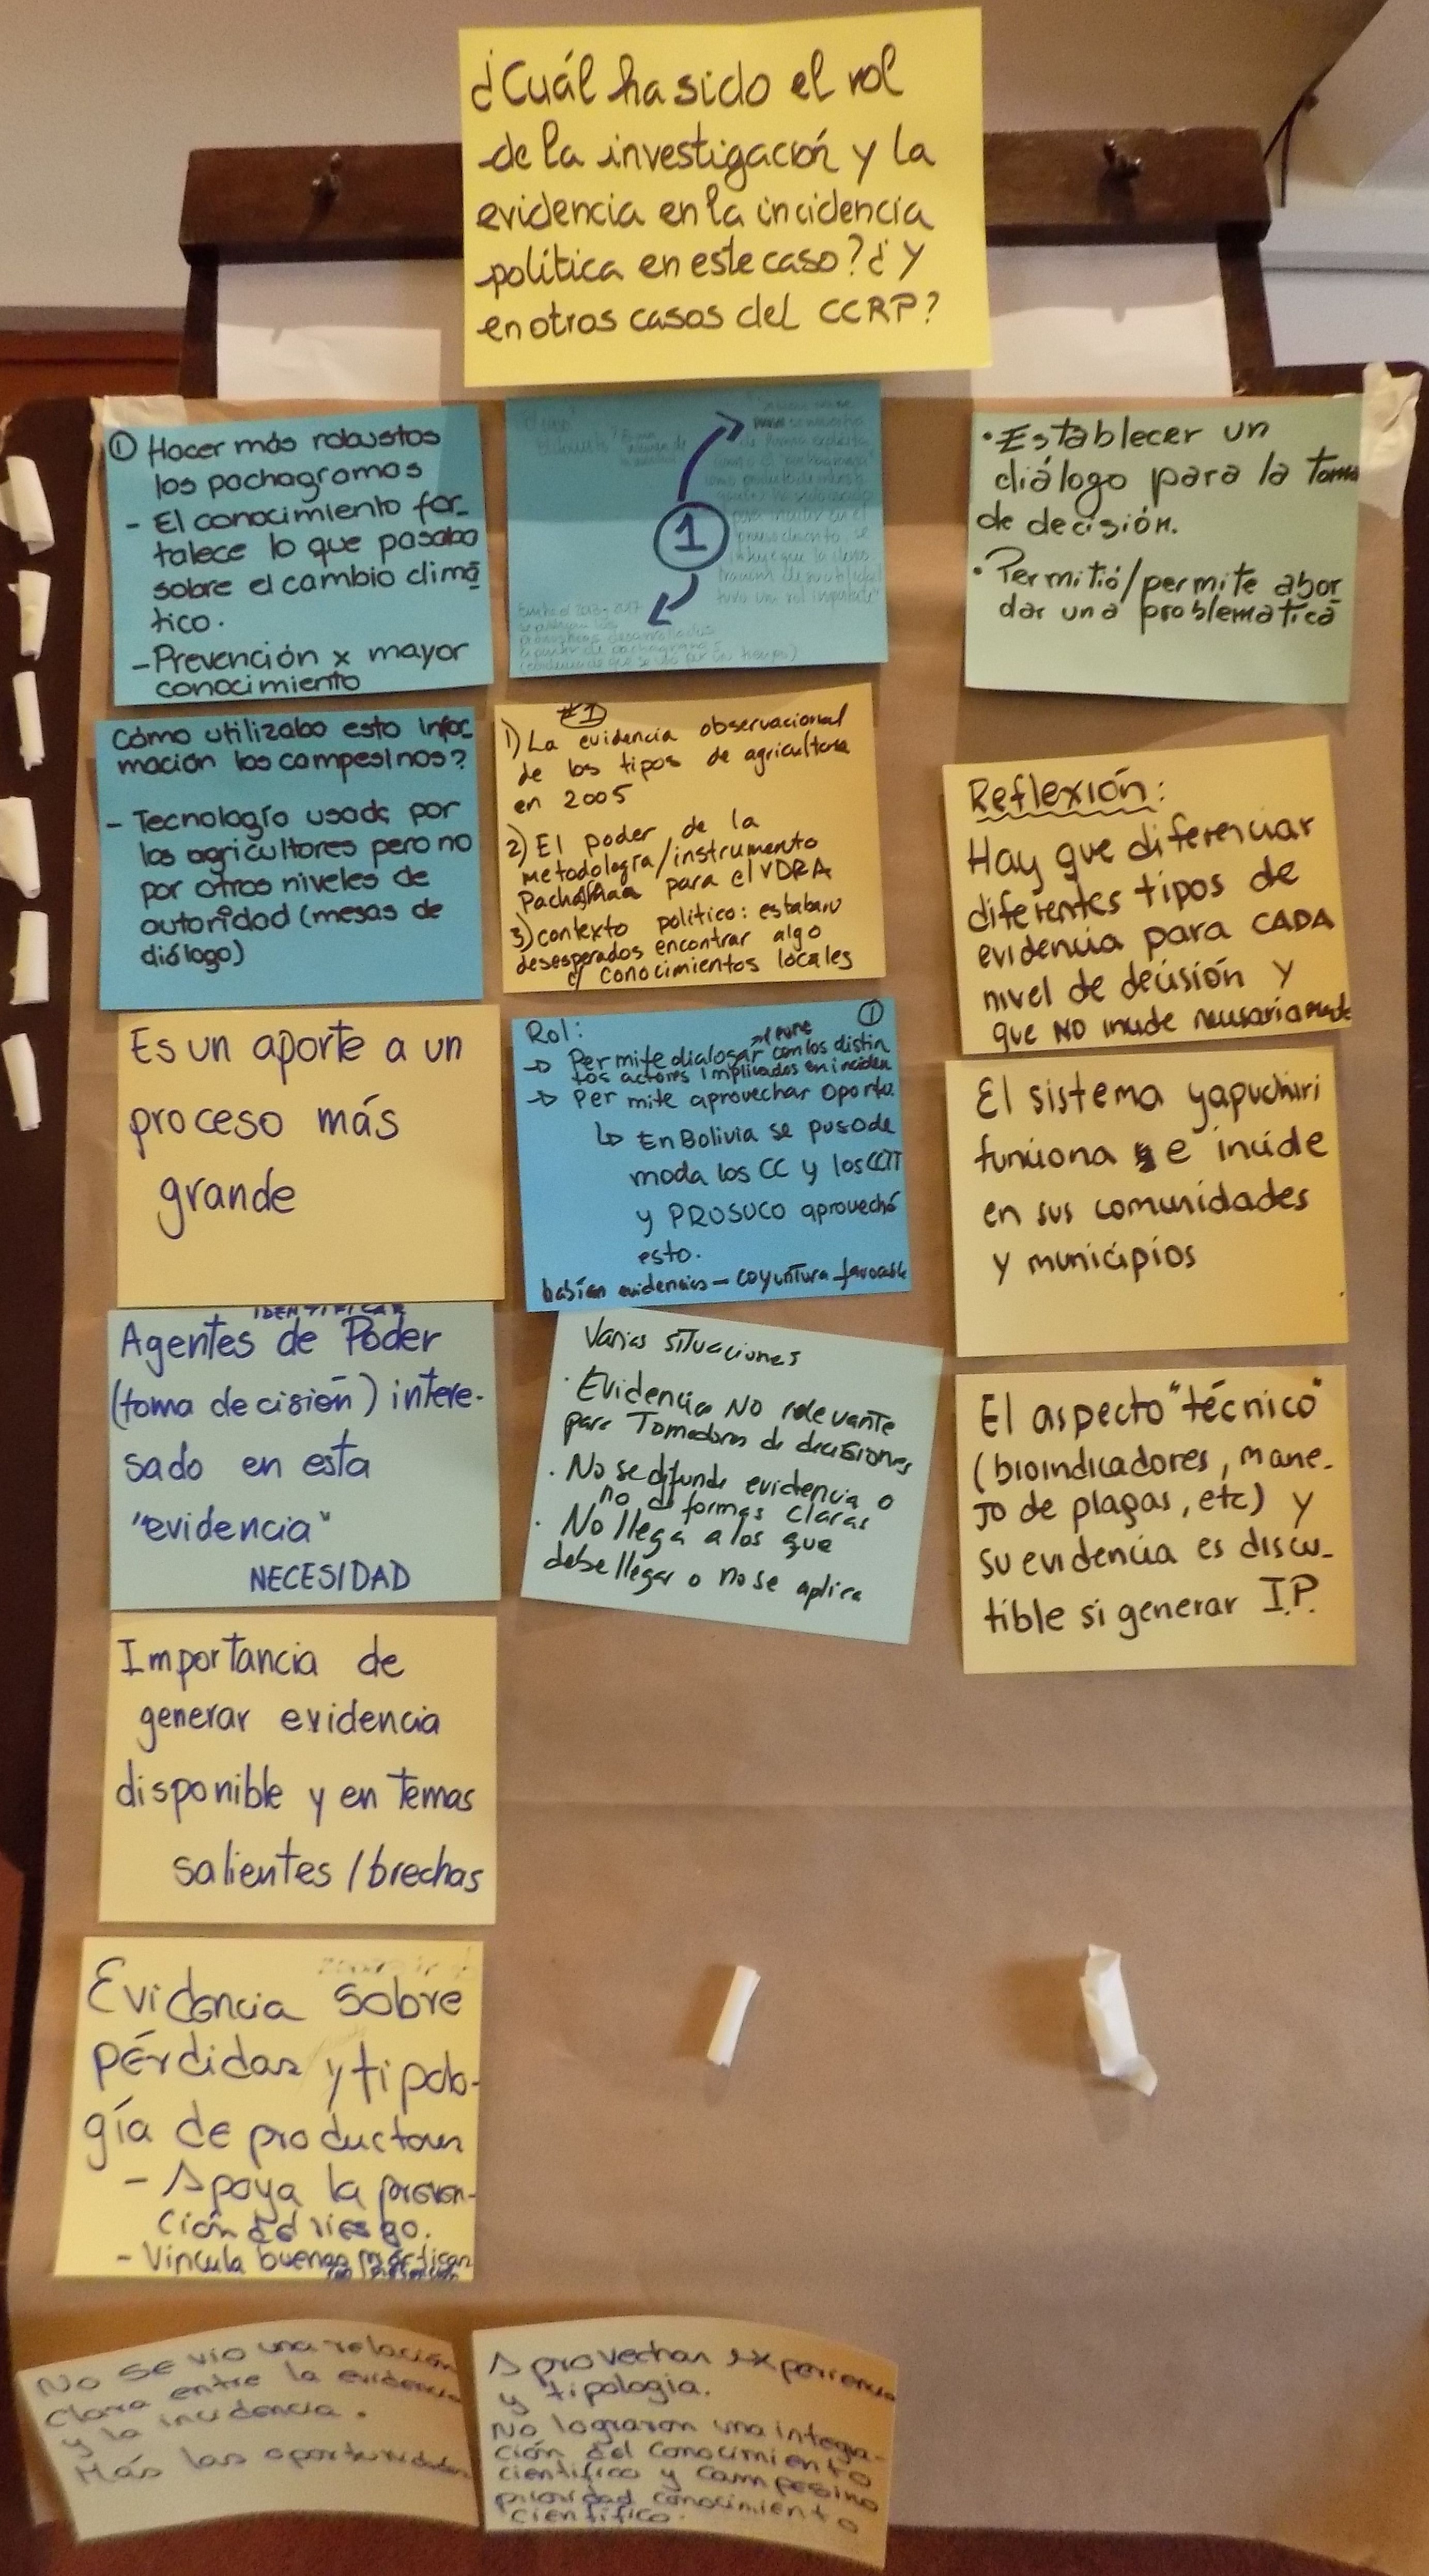 ¿Cuál ha sido el rol
de la investigación y la
evidencia en la incidencia
política en este caso? ¿Y
en otros casos del CCRP?
① Hacer más robustos
los pachagramas
- El conocimiento for-
talece lo que pasaba
sobre el cambio climá
tico.
- Prevención x mayor
conocimiento
Cómo utilizaba esta infor-
mación los campesinos?
- Tecnología usada por
los agricultores pero no
por otros niveles de
autoridad (mesas de
diálogo)
Es un aporte a un
proceso más
grande
IDENTIFICAR
Agentes de Poder
(toma decisión) intere-
sado en esta
"evidencia"
NECESIDAD
Importancia de
generar evidencia
disponible y en temas
salientes / brechas
Evidencia sobre
pérdidas y tipolo-
gía de productores
- Apoya la preven-
ción del riesgo.
- Vincula buenas prácticas
No se vio una relación
clara entre la evidencia
y la incidencia.
Más las oportunidades
1
#1
1) La evidencia observacional
de los tipos de agricultura
en 2005
2) El poder de la
metodología/instrumento
para el VDRA
3) contexto político: estaban
desesperados encontrar algo
c/ conocimientos locales
Rol: ①
→ Permite dialogar con los distin
tos actores implicados en inciden
→ Permite aprovechar oportu.
↳ En Bolivia se puso de
moda los CC y los CCTT
y PROSUCO aprovechó
esto.
habían evidencias - coyuntura favorable
Varias situaciones
· Evidencia NO relevante
para Tomadores de decisiones
· No se difunde evidencia o
no de formas claras
· No llega a los que
debe llegar o no se aplica
Aprovechan experiencia
y tipología.
No lograron una integra-
ción del conocimiento
científico y campesino
prioridad conocimiento
científico.
• Establecer un
diálogo para la toma
de decisión.
• Permitió/permite abor
dar una problemática
Reflexión:
Hay que diferenciar
diferentes tipos de
evidencia para CADA
nivel de decisión y
que NO incide necesariamente
El sistema yapuchiri
funciona e incide
en sus comunidades
y municipios
El aspecto "técnico"
(bioindicadores, mane-
jo de plagas, etc) y
su evidencia es discu-
tible si generar I.P.